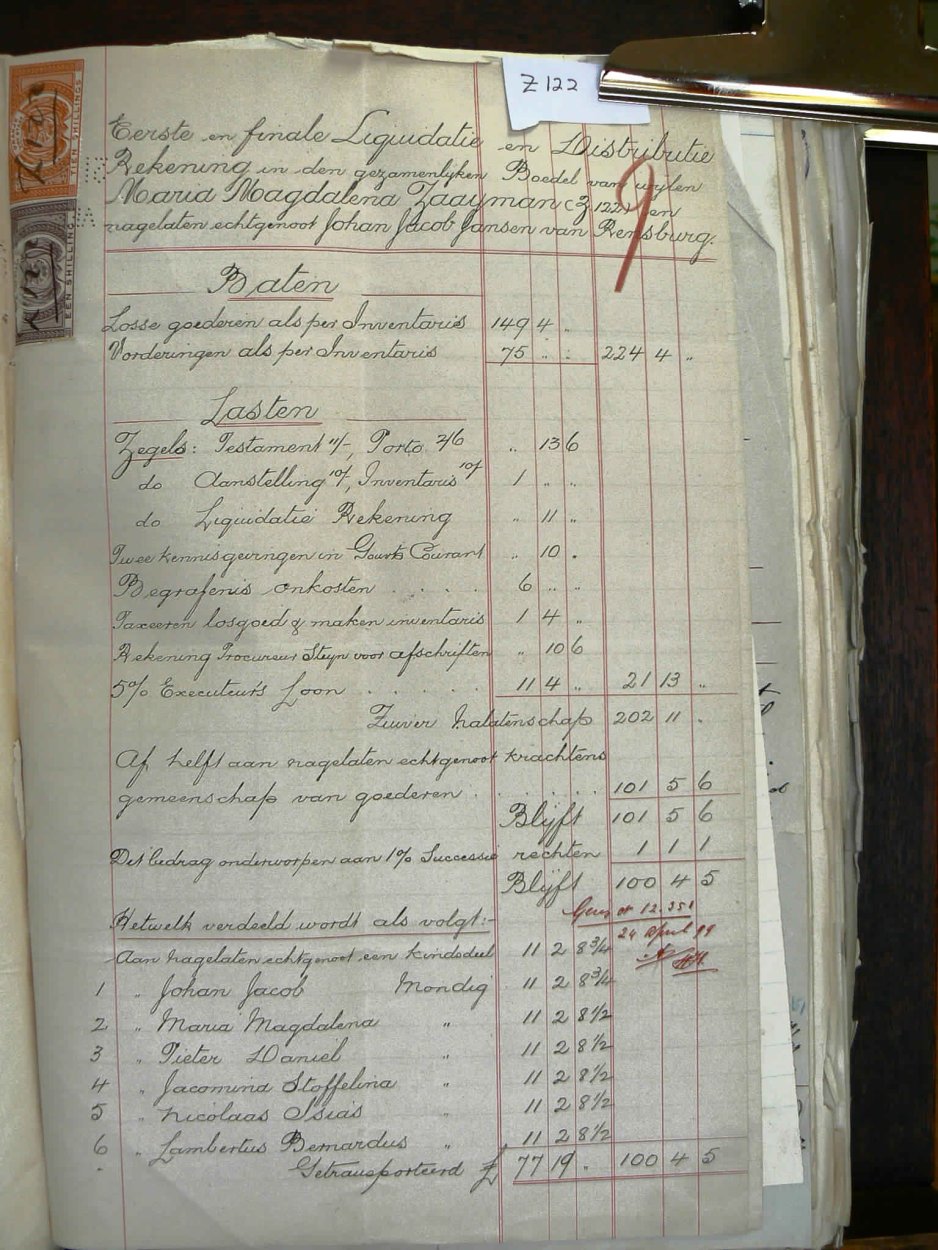 Z 122
TIEN SHILLINGS
EEN SHILLING
Eerste en finale Liquidatie en Distributie
Rekening in den gezamenlyken Boedel van wijlen
Maria Magdalena Zaayman (Z 122) en
nagelaten echtgenoot Johan Jacob Jansen van Rensburg.
Baten
Losse goederen als per Inventaris 149 4 "
Vorderingen als per Inventaris 75 " " 224 4 "
Lasten
Zegels: Testament 11/-, Porto 2/6 " 13 6
do Aanstelling 10/, Inventaris 10/ 1 " "
do Liquidatie Rekening " 11 "
Twee kennisgevingen in Gouvts Courant " 10 "
Begrafenis onkosten . . . . 6 " "
Taxeeren losgoed & maken inventaris 1 4 "
Rekening Procureur Steyn voor afschriften " 10 6
5% Executeurs Loon . . . . . . 11 4 " 21 13 "
Zuiver Nalatenschap 202 11 "
Af helft aan nagelaten echtgenoot krachtens
gemeenschap van goederen . . . . . . 101 5 6
Blijft 101 5 6
Dit bedrag onderworpen aan 1% Successie rechten 1 1 1
Blijft 100 4 5
12.351
Hetwelk verdeeld wordt als volgt:-
24 April 99
Aan nagelaten echtgenoot een kindsdeel 11 2 8 3/4
1 " Johan Jacob Mondig 11 2 8 3/4
2 " Maria Magdalena " 11 2 8 1/2
3 " Pieter Daniel " 11 2 8 1/2
4 " Jacomina Stoffelina " 11 2 8 1/2
5 " Nicolaas Isias " 11 2 8 1/2
6 " Lambertus Bernardus " 11 2 8 1/2
Getransporteerd £ 77 19 " 100 4 5